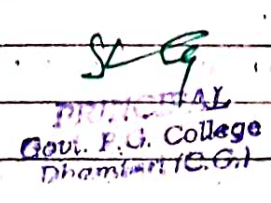 PRINCIPAL
Govt. P.G. College
Dhamtari (C.G.)